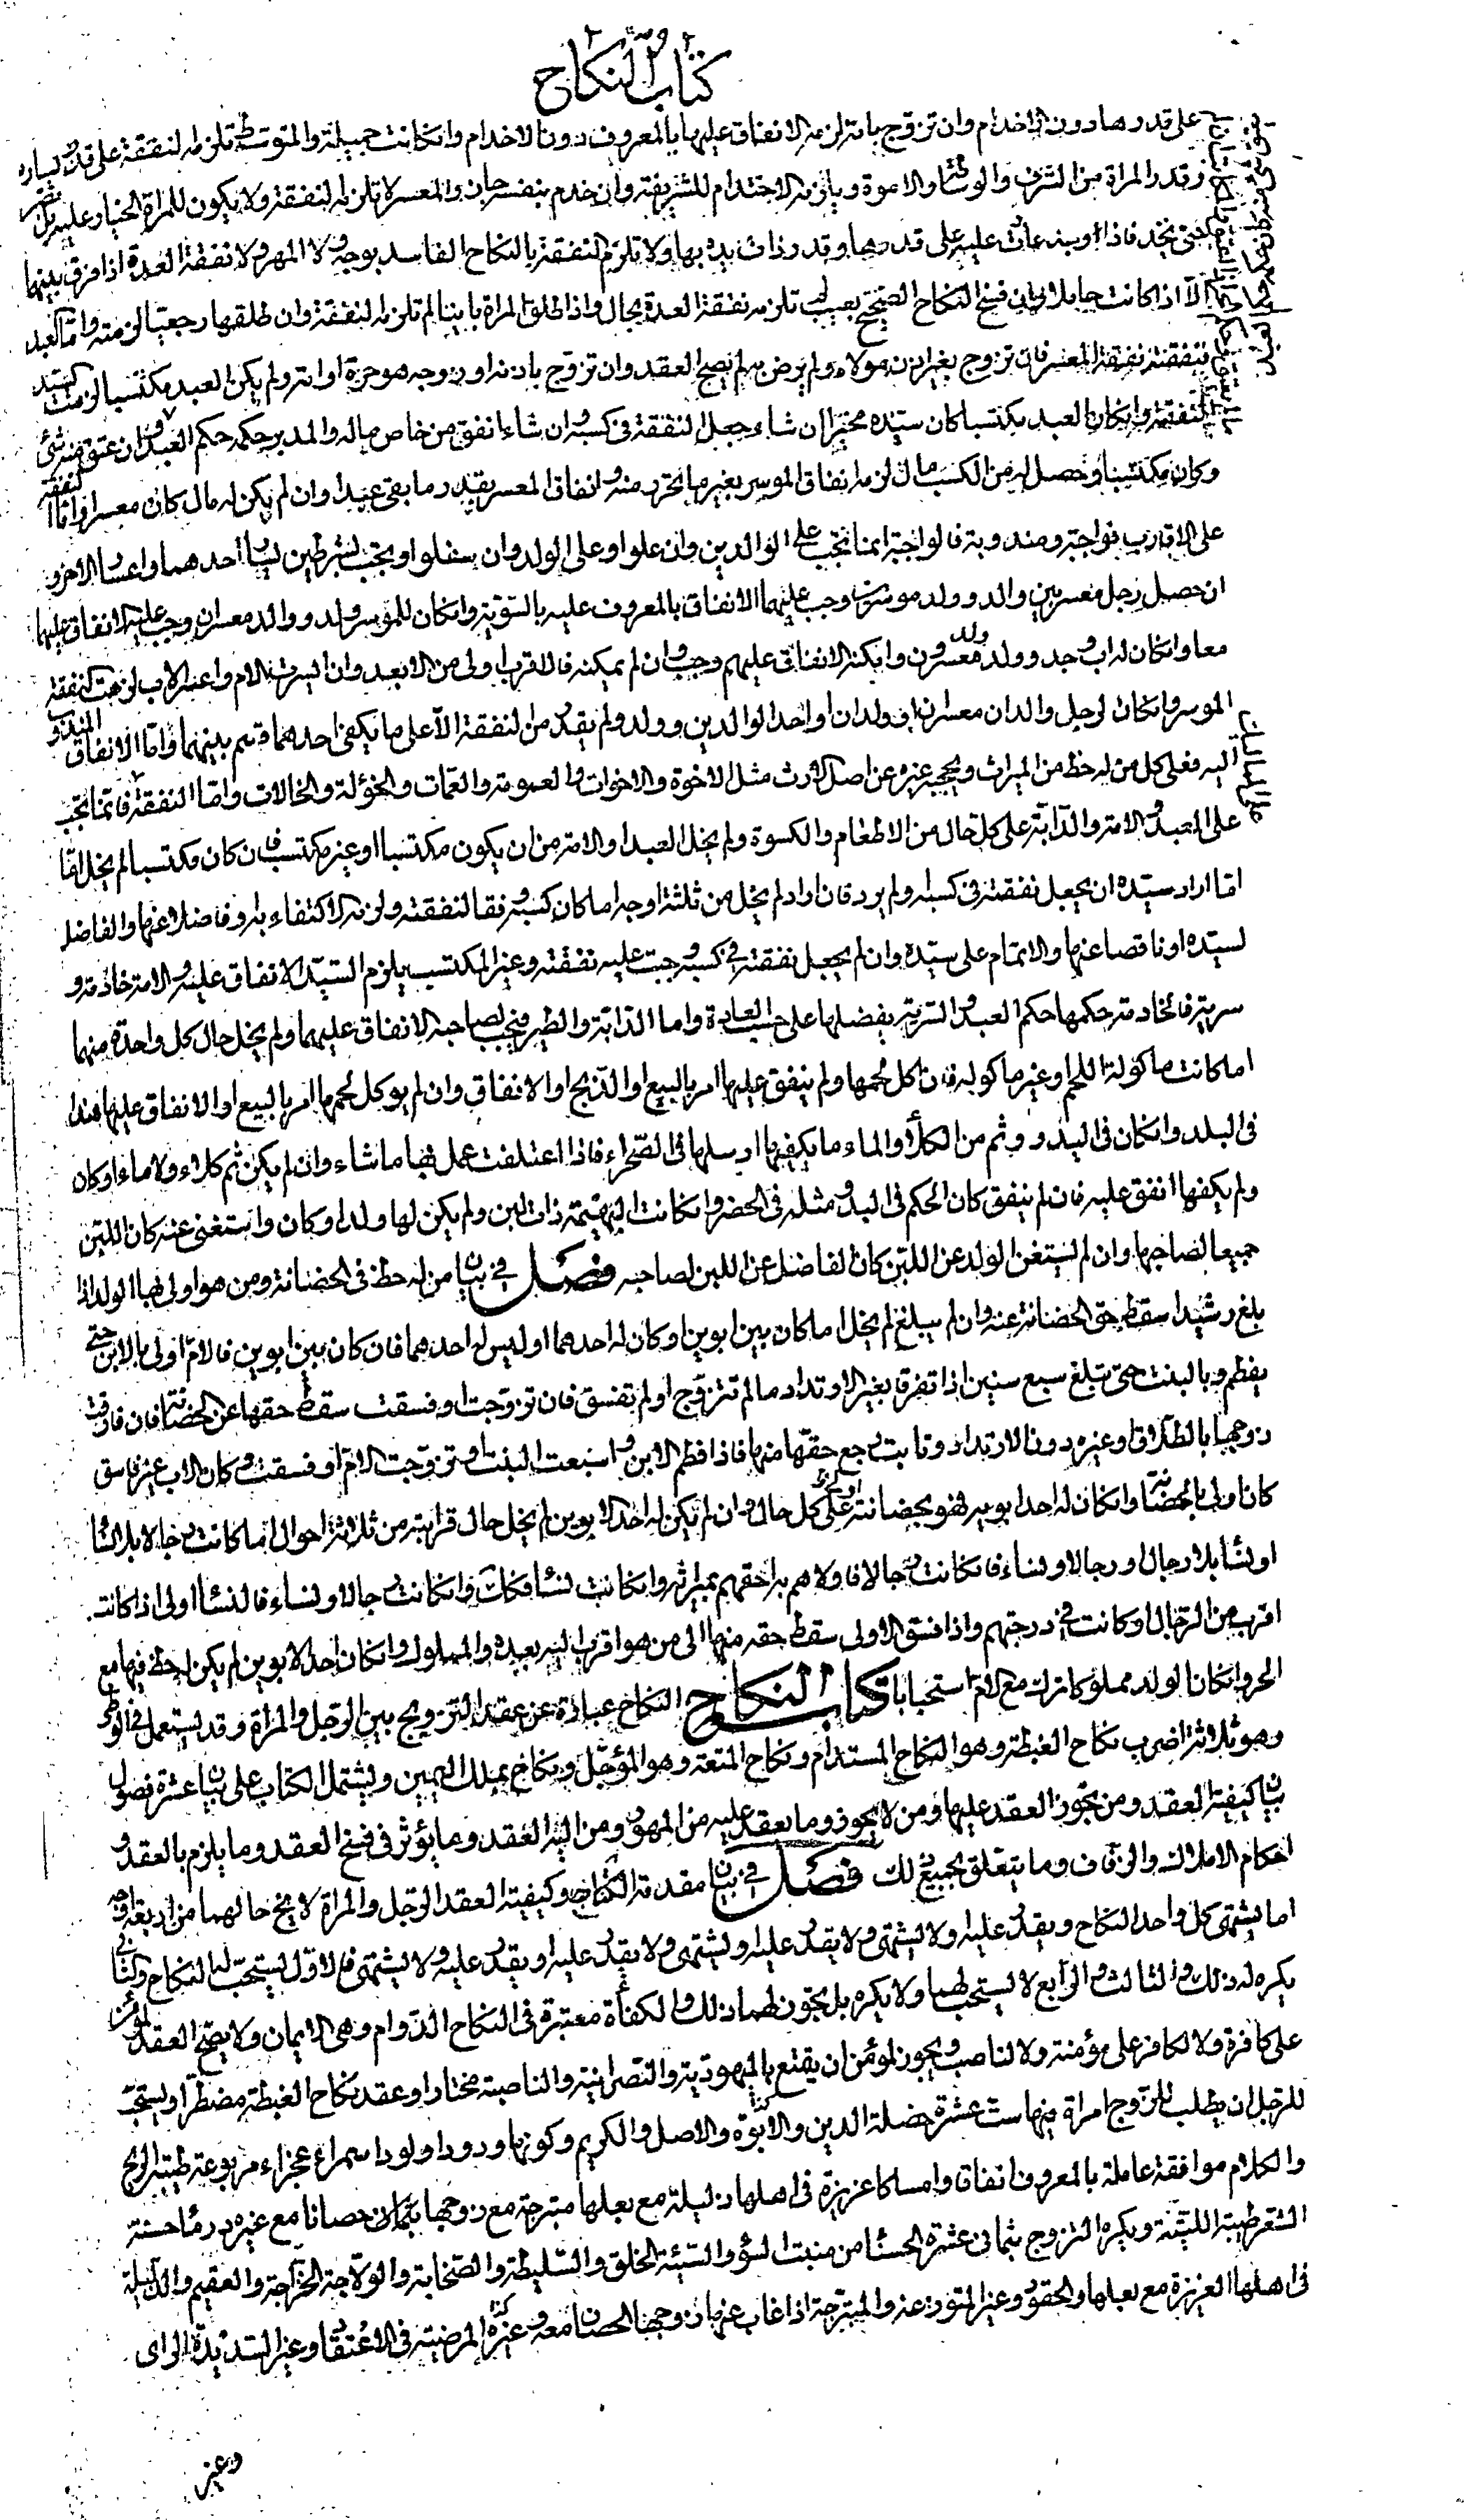 كتاب النكاح
على قدرها دون الاخدام وان تزوج بامة لزمه الانفاق عليها بالمعروف دون الاخدام وانكانت جميلة والمتوسط تلزمه النفقة على قدر يساره
وقدر المراة من الشرف والوساطة والاموة ويلزمه الاختدام للشريفة وان خدم بنفسه جاز والمعسر لا تلزمه النفقة ولا يكون للمراة الخيار وعليها
حتى يجد فاذا عليه على قدرهما وقدر ذات يده بها ولا تلزم النفقة بالنكاح الفاسد بوجه ولا المهر ولا نفقة العدة اذا فرق بينهما
الا اذا كانت حاملا وان فسخ النكاح الصحيح بعيب لم تلزمه نفقة العدة بحال واذا طلق المراة باينا لم تلزمه النفقة وان طلقها رجعيا لزمته واما العبد
فنفقته نفقة المعسر فان تزوج بغير اذن مولاه ولم يرض به لم يصح العقد وان تزوج باذنه او زوجه هو حرة او امة ولم يكن العبد مكتسبا لزمت السيد
النفقة وان كان العبد مكتسبا كان سيده مخيرا ان شاء جعل النفقة في كسبه وان شاء انفق من خاص ماله والمدبر حكمه حكم العبد وان عتق منه شئ
وكان مكتسبا وحصل له من الكسب مال لزمه انفاق الموسر بقدر ما تحرر منه وانفاق المعسر بقدر ما بقى عبدا وان لم يكن له مال كان معسرا واما النفقة
على الاقارب فواجبة ومندوبة فالواجبة انما تجب على الوالدين وان علوا وعلى الولد وان سفلوا ويجب بشرطين يسار احدهما واعسار الاخر و
ان حصل رجل معسر بين والد وولد موسرين وجب عليهما الانفاق بالمعروف عليه بالسوية وانكان للموسر ولد ووالد معسران وجب عليه الانفاق عليهما
معا وانكان له اب وجد وولد وولد ولد معسرون وامكنه الانفاق عليهم وجب وان لم يمكنه فالاقرب اولى من الابعد وان ايسرت الام واعسر الاب لزمت النفقة
الموسر وانكان لرجل والدان معسران او ولدان او احد الوالدين وولد ولم يقدر من النفقة الا على ما يكفى احدهما قسم بينهما واما الانفاق المندوب
اليه فعلى كل من له حظ من الميراث ويحجبه غيره عن اصل الارث مثل الاخوة والاخوات والعمومة والعمات والخؤلة والخالات واما النفقة فانما تجب
على العبد والامة والدابة على كل حال من الاطعام والكسوة ولم يخل العبد او الامة من ان يكون مكتسبا او غير مكتسب فان كان مكتسبا لم يخل
اما اراد سيده ان يجعل نفقته في كسبه ولم يرد فان اراد لم يخل من ثلثة اوجه اما كان كسبه وفقا لنفقته ولزمه الاكتفاء به او فاضلا عنها والفاضل
لسيده او ناقصا عنها والاتمام على سيده وان لم يجعل نفقته في كسبه وجبت عليه نفقته وغير المكتسب يلزم السيد الانفاق عليه والامة خادمة و
سرية فالخادمة حكمها حكم العبد والسرية يفضلها على حسب العادة واما الدابة والطير فيجب لصاحبه الانفاق عليهما ولم يخل حال كل واحدة منهما
اما كانت ماكولة اللحم او غير ماكولة فان اكل لحمها ولم ينفق عليها امر بالبيع او الذبح او الانفاق وان لم يوكل لحمها امر بالبيع او الانفاق عليها هذا
في البلد وانكان في البدو وثم من الكلأ والماء ما يكفيها ارسلها في الصحراء فاذا اعتلفت عمل فيها ما شاء وان لم يكن ثم كلاء ولا ماء او كان
ولم يكفها انفق عليه فان لم ينفق كان الحكم في البدو مثله في الحضر وانكانت البهيمة ذات لبن ولم يكن لها ولد او كان واستغنى عنه كان اللبن
جميعا لصاحبها وان لم يستغن الولد عن اللبن كان الفاضل عن اللبن لصاحبه فصل في بيان من له حظ في الحضانة ومن هو اولى بها الولد اذا
بلغ رشيدا سقط حق الحضانة عنه وان لم يبلغ لم يخل اما كان بين ابوين او كان له احدهما او ليس له احدهما فان كان بين ابوين فالام اولى بالابن حتى
يفطم وبالبنت حتى تبلغ سبع سنين اذا تفرقا بغير الارتداد ما لم تتزوج او لم تفسق فان تزوجت او فسقت سقط حقها عن الحضانة فان فارقت
زوجها بالطلاق وغيره دون الارتداد وتابت رجع حقها منها فاذا فطم الابن او اسبعت البنت او تزوجت الام او فسقت وكان الاب غير فاسق
كان اولى بالحضانة وانكان له احد ابويه فهو بحضانته اولى على كل حال وان لم يكن له احد الابوين لم يخل حال قرابته من ثلاثة احوال اما كانت رجالا بلا نساء
او نساء بلا رجال او رجالا ونساء فانكانت رجالا فاولاهم به احقهم بميراثه وانكانت نساء فكذلك وانكانت رجالا ونساء فالنساء اولى اذا كانت
اقرب من الرجال او كانت في درجتهم واذا فسق الاولى سقط حقه منها الى من هو اقرب اليه بعيده والمملوك وانكان احد الابوين لم يكن له حظ فيها مع
الحر وانكان الولد مملوكا ترك مع الام استحبابا كتاب النكاح النكاح عبارة عن عقد التزويج بين الرجل والمراة وقد يستعمل في الوطى
وهو ثلاثة اضرب نكاح الغبطة وهو النكاح المستدام ونكاح المتعة وهو المؤجل ونكاح بملك اليمين ويشتمل الكتاب على بيان عشرة فصول
بيان كيفية العقد ومن يجوز العقد عليها ومن لا يجوز وما يعقد عليه من المهور ومن اليه العقد وما يؤثر في فسخ العقد وما يلزم بالعقد و
احكام الاملاك والزفاف وما يتعلق بجميع ذلك فصل في بيان مقدمة النكاح وكيفية العقد الرجل والمراة لا يخ حالهما من اربعة اوجه
اما يشتهى كل واحد النكاح ويقدر عليه او لا يشتهى ولا يقدر عليه او يشتهى ولا يقدر عليه او يقدر عليه ولا يشتهى فالاول يستحب له النكاح والثانى
يكره له ذلك والثالث والرابع لا يستحب لهما ولا يكره بل يجوز لهما ذلك والكفأة معتبرة في النكاح الدوام وهى الايمان ولا يصح العقد لمؤمن
على كافرة ولا لكافر على مؤمنة ولا لناصب ويجوز لمؤمن ان يمتع باليهودية والنصرانية والناصبة مختارا وعقد نكاح الغبطة مضطرا ويستحب
للرجل ان يطلب للزوج امراة فيها ست عشرة خصلة الدين والابوة والاصل والكريم وكونها ودودا ولودا سمراء عجزاء مربوعة طيبة الريح
والكلام موافقة عاملة بالمعروف انفاقا وامساكا عزيزة في اهلها ذليلة مع بعلها متبرجة مع زوجها حصانا مع غيره درماء حسنة
الشعر طيبة الليتة ويكره التزوج بثمانى عشرة الحسناء من منبت السؤ والسيئة الخلق والسليطة والصخابة والولاجة الخراجة والعقيم والذليلة
في اهلها العزيزة مع بعلها والحقود وغير المتورعة والمتبرجة اذا غاب عنها زوجها الحصان معه وغير المرضية في الاعتقاد وغير السديدة الراى
وغير